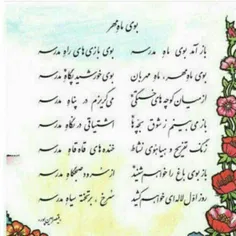 بوی ماه مهر
باز آمد بوی ماه مدرسه بوی بازی‌های راه مدرسه
بوی ماه مهر، ماه مهربان بوی خورشید پگاه مدرسه
از میان کوچه‌های خستگی می‌گریزم در پناه مدرسه
باز می‌بینم ز شوق بچه‌ها اشتیاقی در نگاه مدرسه
زنگ تفریح و هیاهوی نشاط خنده‌های قاه قاه مدرسه
باز بوی باغ را خواهم شنید از سرود صبحگاه مدرسه
روز اول لاله‌ای خواهم کشید سرخ، بر تخته سیاه مدرسه